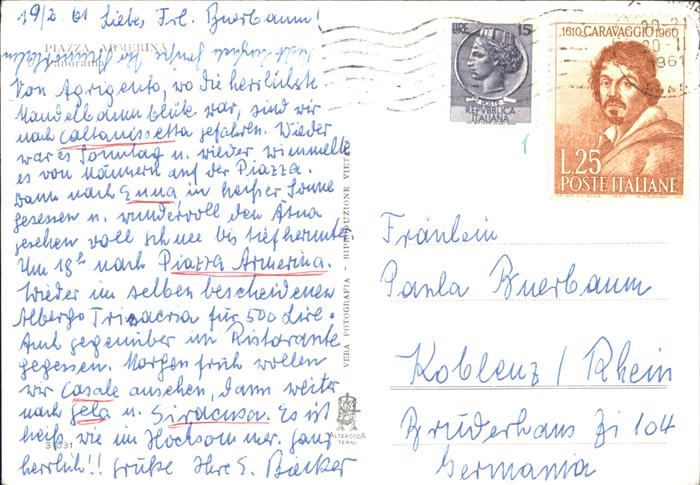 19/2 61 Liebes Frl. Buerbaum!
PIAZZA ARMERINA
Panorama
Von Agrigento, wo die herrlichste
Mandelbaumblüte war, sind wir
nach Caltanissetta gefahren. Wieder
war es Sonntag u. wieder wimmelte
es von Männern auf der Piazza.
Dann nach Enna, in heißer Sonne
gesessen u. wundervoll den Ätna
gesehen voll Schnee bis tief herunter.
Um 18h nach Piazza Armerina.
Wieder im selben bescheidenen
Albergo Trinacria für 500 Lire.
Amt gegenüber im Ristorante
gegessen. Morgen früh wollen
wir Casale ansehen, dann weiter
nach Gela u. Siracusa. Es ist
heiß, wie im Hochsommer. Ganz
herrlich!! Grüße Ihre E. Bäcker
VERA FOTOGRAFIA - RIPRODUZIONE VIETATA
ALTEROCCA
TERNI
LIRE 15
POSTE
REPVBBLICA
ITALIANA
1610 CARAVAGGIO 1960
L.25
POSTE ITALIANE
1961
1
Fräulein
Paula Buerbaum
Koblenz / Rhein
Brüderhaus Zi 104
Germania